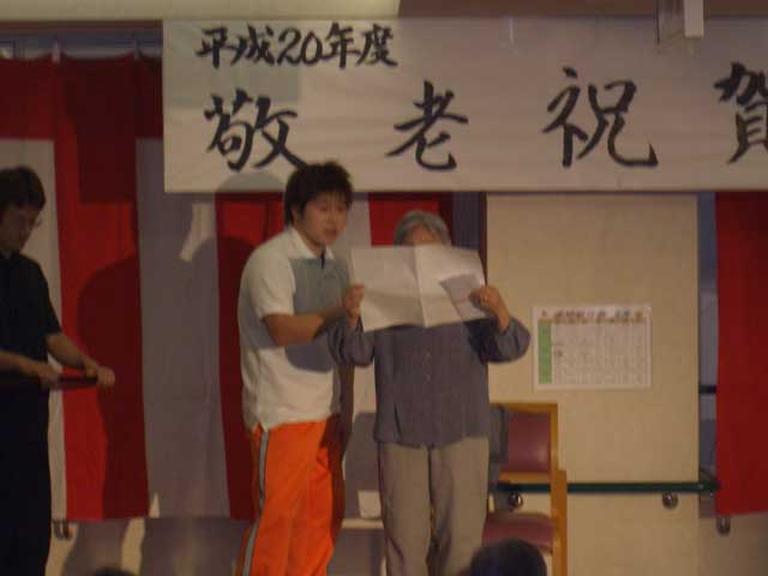 平成20年度
敬老祝賀